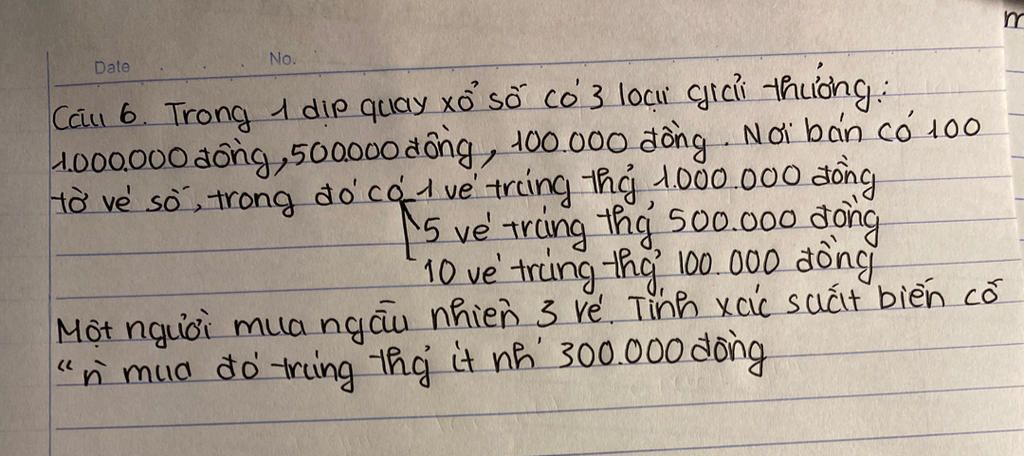 m
Date No.
Câu 6. Trong 1 dịp quay xổ số có 3 loại giải thưởng:
1.000.000 đồng, 500.000 đồng, 100.000 đồng. Nơi bán có 100
tờ vé số, trong đó có 1 vé trúng thg̉ 1.000.000 đồng
5 vé trúng thg̉ 500.000 đồng
10 vé trúng thg̉ 100.000 đồng
Một người mua ngẫu nhiên 3 vé. Tính xác suất biến cố
"ǹ mua đó trúng thg̉ ít nh́ 300.000 đồng